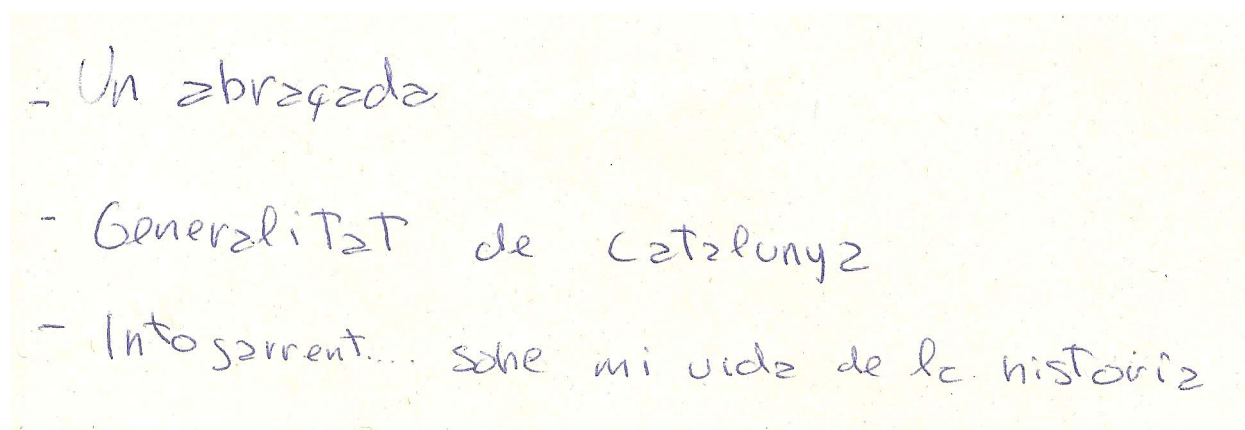 - Un abraçada
- Generalitat de Catalunya
- Intogarrent.... sohe mi vida de la historia